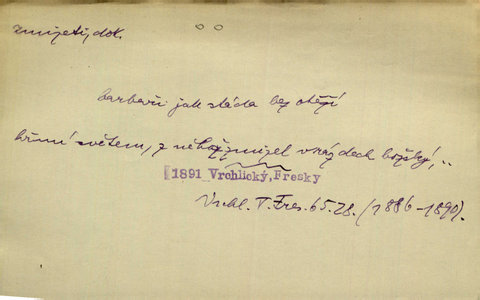 zmizeti, dok.
barbaři jak stáda bez otěží
hřmí světem, z něhož zmizel v vraždech božský,..
[1891 Vrchlický, Fresky
Vrchl. T. Fres. 65. 28. (1886–1890).